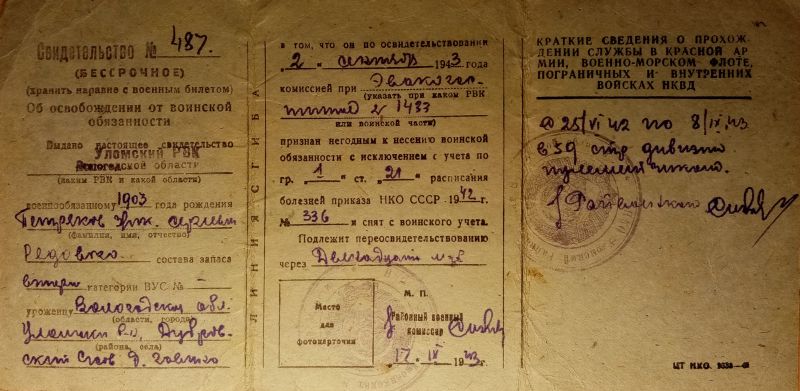 Свидетельство № 487.
(БЕССРОЧНОЕ)
(хранить наравне с военным билетом)
Об освобождении от воинской
обязанности
Выдано настоящее свидетельство
Уломский РВК
Вологодской области
(каким РВК и какой области)
военнообязанному 1903 года рождения
Петряков
(фамилия, имя, отчество)
Рядовой состава запаса
категории ВУС № —
уроженцу Вологодская обл.
(области, города)
Дубров-
(района, села)
ский д.
ЛИНИЯ СГИБА
в том, что он по освидетельствовании
"2" 1943 года
комиссией при Эвакогос-
(указать при каком РВК
питале 1433
или воинской части)
признан негодным к несению воинской
обязанности с исключением с учета по
гр. 1 ст. 21 расписания
болезней приказа НКО СССР 1942 г.
№ 336 и снят с воинского учета.
Подлежит переосвидетельствованию
через
Место
для
фотокарточки
М. П.
Районный военный
комиссар
17 IX 1943
КРАТКИЕ СВЕДЕНИЯ О ПРОХОЖ-
ДЕНИИ СЛУЖБЫ В КРАСНОЙ АР
МИИ, ВОЕННО-МОРСКОМ ФЛОТЕ,
ПОГРАНИЧНЫХ И ВНУТРЕННИХ
ВОЙСКАХ НКВД
с 25/VI 42 по 8/IX 43
в 59 стр дивизии
ЦТ НКО.